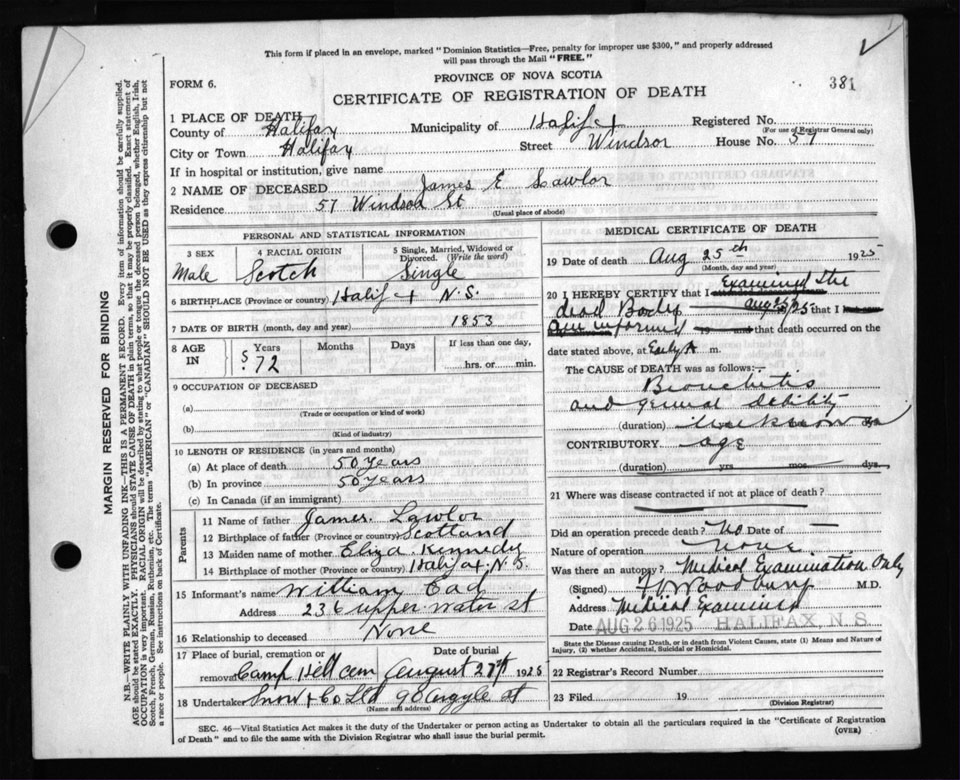 This form if placed in an envelope, marked "Dominion Statistics—Free, penalty for improper use $300," and properly addressed
will pass through the Mail "FREE."
PROVINCE OF NOVA SCOTIA
FORM 6.
381
CERTIFICATE OF REGISTRATION OF DEATH
1 PLACE OF DEATH
County of Halifax Municipality of Halifax Registered No.
(For use of Registrar General only)
City or Town Halifax Street Windsor House No. 57
If in hospital or institution, give name
2 NAME OF DECEASED James E Lawlor
Residence 57 Windsor St
(Usual place of abode)
PERSONAL AND STATISTICAL INFORMATION
3 SEX 4 RACIAL ORIGIN 5 Single, Married, Widowed or Divorced. (Write the word)
Male Scotch Single
6 BIRTHPLACE (Province or country) Halifax N.S.
7 DATE OF BIRTH (month, day and year) 1853
8 AGE IN Years Months Days If less than one day,
72 hrs. or min.
9 OCCUPATION OF DECEASED
(a)
(Trade or occupation or kind of work)
(b)
(Kind of industry)
10 LENGTH OF RESIDENCE (in years and months)
(a) At place of death 50 years
(b) In province 50 years
(c) In Canada (if an immigrant)
Parents
11 Name of father James Lawlor
12 Birthplace of father (Province or country) Scotland
13 Maiden name of mother Eliza Kennedy
14 Birthplace of mother (Province or country) Halifax N.S.
15 Informant's name William
Address 236 upper water st
16 Relationship to deceased None
17 Place of burial, cremation or removal Date of burial
Camp Hill Cem August 27th 1925
18 Undertaker Snow & Co Ltd 90 Argyle st
(Name and address)
MEDICAL CERTIFICATE OF DEATH
19 Date of death Aug 25th 1925
(Month, day and year)
20 I HEREBY CERTIFY that I examined the
dead Body Aug 25/25 that I
am informed 19 and that death occurred on the
date stated above, at Early A m.
The CAUSE of DEATH was as follows:
Bronchitis
and general debility
(duration) unknown
CONTRIBUTORY age
(duration) yrs mos. dys.
21 Where was disease contracted if not at place of death?
Did an operation precede death? No Date of —
Nature of operation None
Was there an autopsy? Medical Examination Only
(Signed) Woodbury M.D.
Address Medical Examiner
Date AUG 26 1925 HALIFAX, N.S.
State the Disease causing Death, or in death from Violent Causes, state (1) Means and Nature of
Injury, (2) whether Accidental, Suicidal or Homicidal.
22 Registrar's Record Number
23 Filed 19
(Division Registrar)
SEC. 46—Vital Statistics Act makes it the duty of the Undertaker or person acting as Undertaker to obtain all the particulars required in the "Certificate of Registration
of Death" and to file the same with the Division Registrar who shall issue the burial permit.
(OVER)
MARGIN RESERVED FOR BINDING
N.B.—WRITE PLAINLY WITH UNFADING INK—THIS IS A PERMANENT RECORD. Every item of information should be carefully supplied.
AGE should be stated EXACTLY. PHYSICIANS should STATE CAUSE OF DEATH in plain terms, so that it may be properly classified. Exact statement of
OCCUPATION is very important. RACIAL ORIGIN will be described by stating to what people or tongue the deceased person belonged, whether English, Irish,
Scotch, French, German, Russian, Ruthenian, etc. The terms "AMERICAN" or "CANADIAN" SHOULD NOT BE USED as they express citizenship but not
a race or people. See instructions on back of Certificate.